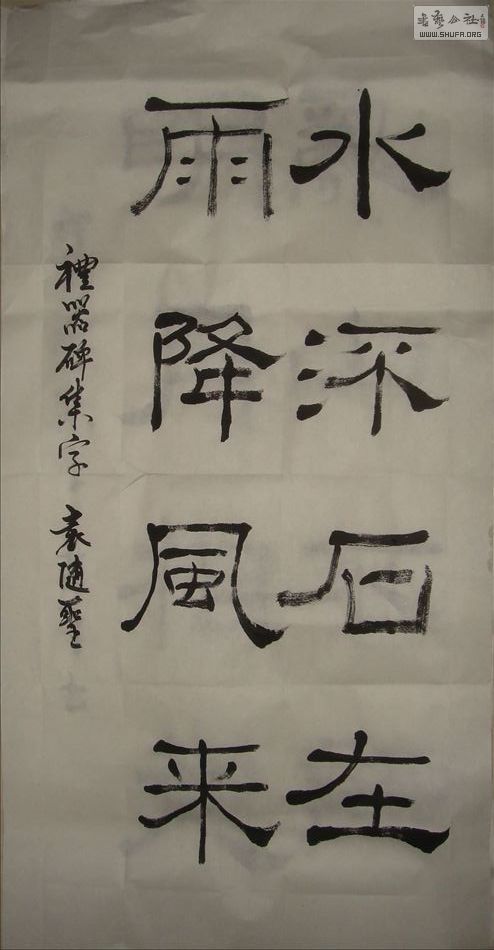 书艺公社
WWW.SHUFA.ORG
水石在
雨降風来
禮器碑集字 袁随聖